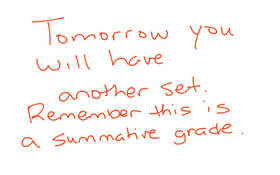 Tomorrow you
will have
another set.
Remember this is
a summative grade.